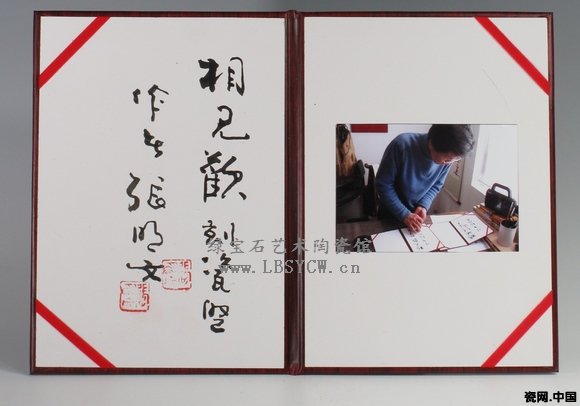 相见歡刻瓷壁
作者張明文
绿宝石艺术陶瓷馆
www.LBSYCW.cn
瓷网.中国